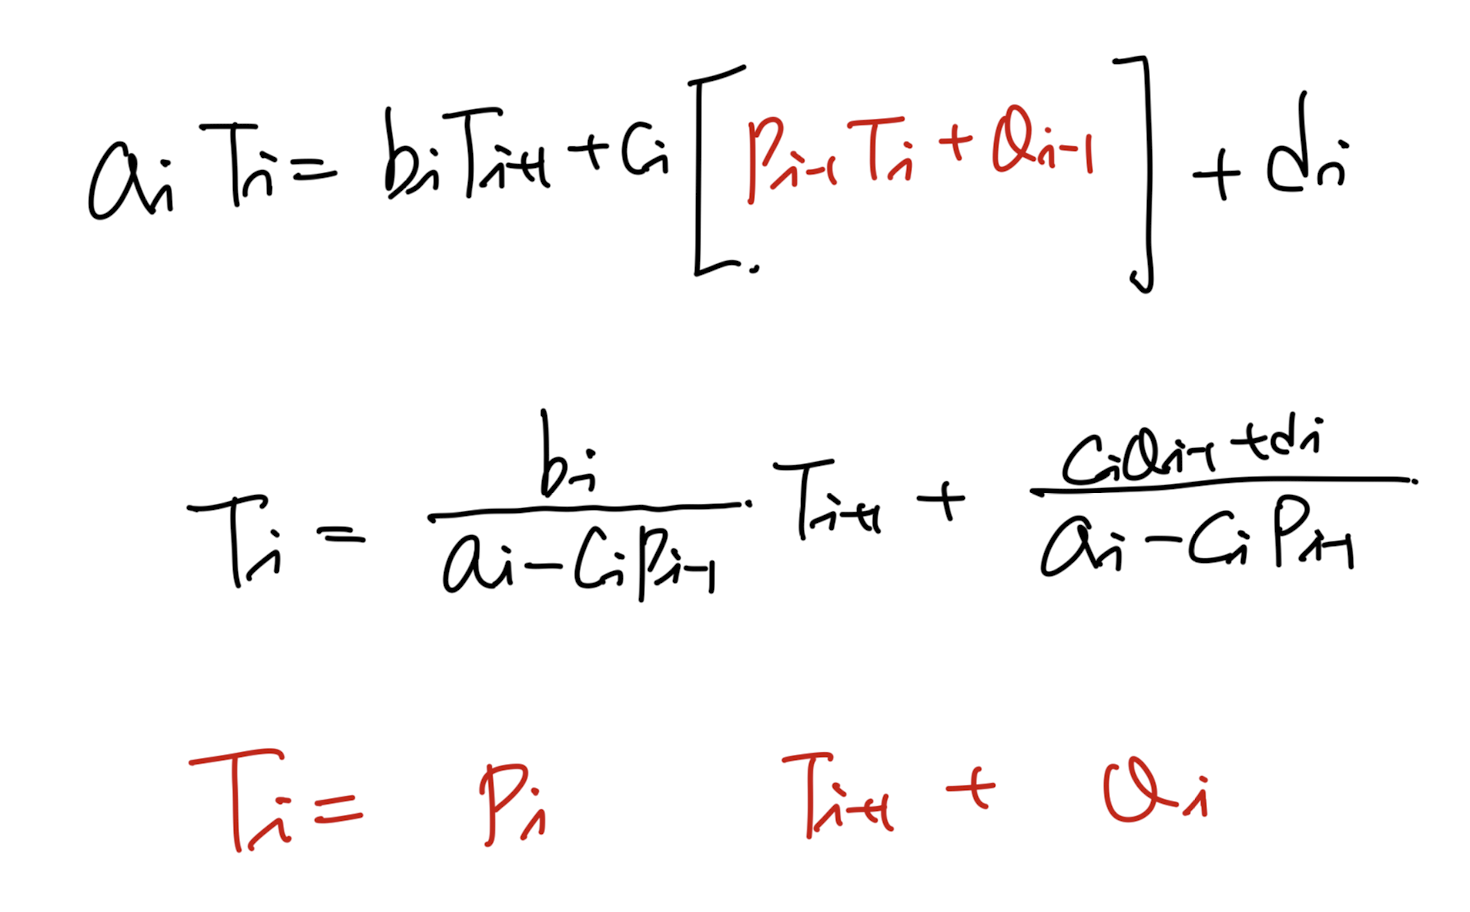 a_i T_i = b_i T_{i+1} + c_i [ P_{i-1} T_i + Q_{i-1} ] + d_i
T_i = \frac{b_i}{a_i - c_i P_{i-1}} T_{i+1} + \frac{c_i Q_{i-1} + d_i}{a_i - c_i P_{i-1}}
T_i = P_i T_{i+1} + Q_i